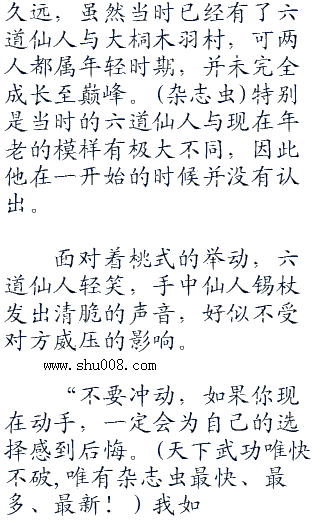 久远，虽然当时已经有了六
道仙人与大桐木羽村，可两
人都属年轻时期，并未完全
成长至巅峰。(杂志虫)特别
是当时的六道仙人与现在年
老的模样有极大不同，因此
他在一开始的时候并没有认
出。
面对着桃式的举动，六
道仙人轻笑，手中仙人锡杖
发出清脆的声音，好似不受
对方威压的影响。
www.shu008.com
“不要冲动，如果你现
在动手，一定会为自己的选
择感到后悔。(天下武功唯快
不破,唯有杂志虫最快、最
多、最新！)我如